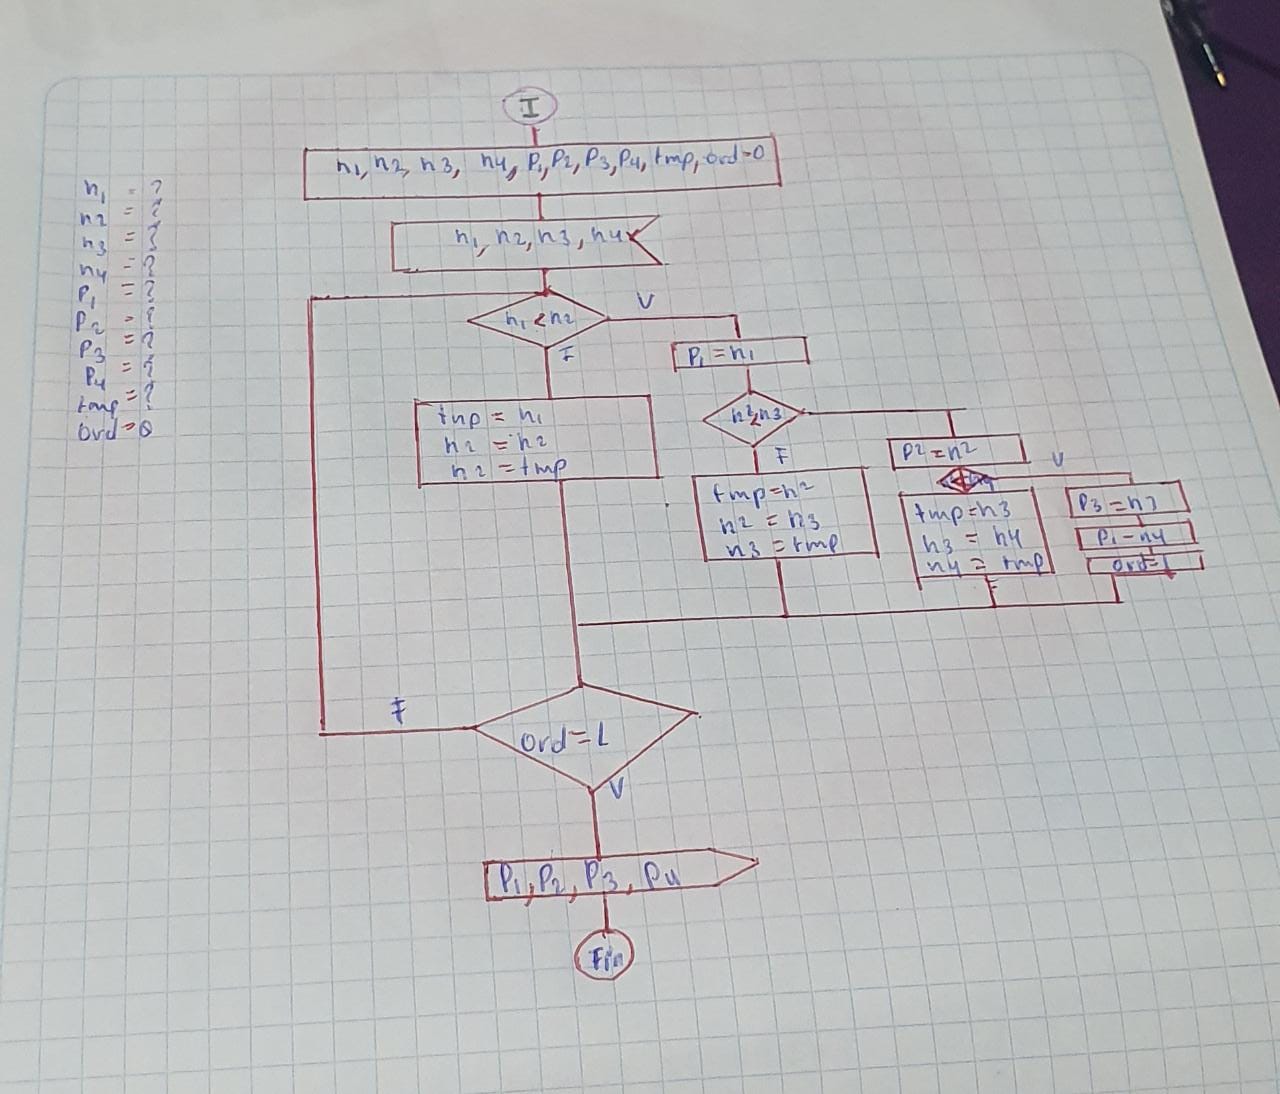 I
n1, n2, n3, n4, P1, P2, P3, P4, tmp, ord=0
n1 = ?
n2 = ?
n3 = ?
n4 = ?
P1 = ?
P2 = ?
P3 = ?
P4 = ?
tmp = ?
ord=0
n1, n2, n3, n4
n1 < n2
V
F
P1 = n1
n2<n3
F
P2 = n2
V
tmp = n1
n2 = n2
n2 = tmp
tmp=n2
n2 = n3
n3 = tmp
tmp=n3
n3 = n4
n4 = tmp
F
P3 = n3
P1 = n4
ord=1
F
ord=1
V
P1, P2, P3, P4
Fin